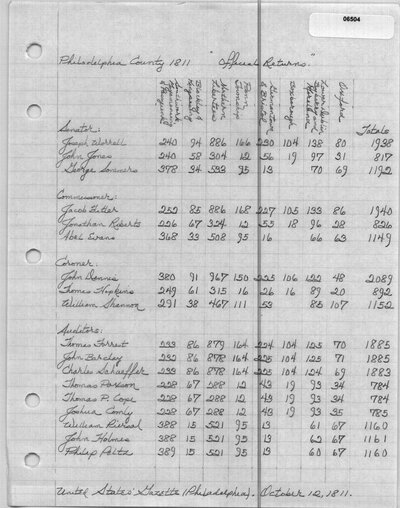 06504
Philadelphia County 1811 "Official Returns."
Southwark
Moyamensing
& Passyunk
Blockley &
Kingsessing
Northern
Liberties
Penn
Township
Germantown
& Bristol
Roxborough
Lower Dublin,
Byberry and
Moreland
Oxford
Totals
Senator:
Joseph Worrall 240 94 886 166 230 104 138 80 1938
John Jones 240 58 304 12 56 19 97 31 817
George Sommers 378 34 533 95 13 70 69 1192
Commissioner:
Jacob Fetter 252 85 886 168 227 105 133 86 1940
Jonathan Roberts 226 67 324 12 53 18 96 28 826
Abel Evans 368 33 508 95 16 66 63 1149
Coroner:
John Dennis 380 91 967 150 225 106 122 48 2089
Thomas Hopkins 249 61 315 16 26 16 89 20 892
William Shannon 291 38 467 111 53 85 107 1152
Auditors:
Thomas Forrest 233 86 879 164 224 104 125 70 1885
John Barclay 232 86 878 164 225 104 125 71 1885
Charles Schaeffer 233 86 878 164 225 104 124 69 1883
Thomas Paxson 228 67 288 12 43 19 93 34 784
Thomas P. Cope 228 67 288 12 43 19 93 34 784
Joshua Comly 228 67 288 12 43 19 93 35 785
William Piersol 388 15 521 95 13 61 67 1160
John Holmes 388 15 521 95 13 62 67 1161
Philip Peltz 389 15 521 95 13 60 67 1160
United States' Gazette (Philadelphia). October 12, 1811.